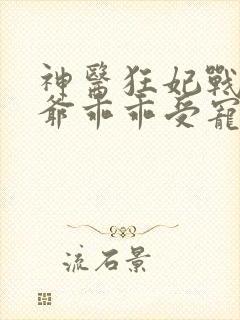 神醫狂妃戰
爺乖乖受寵
流石景